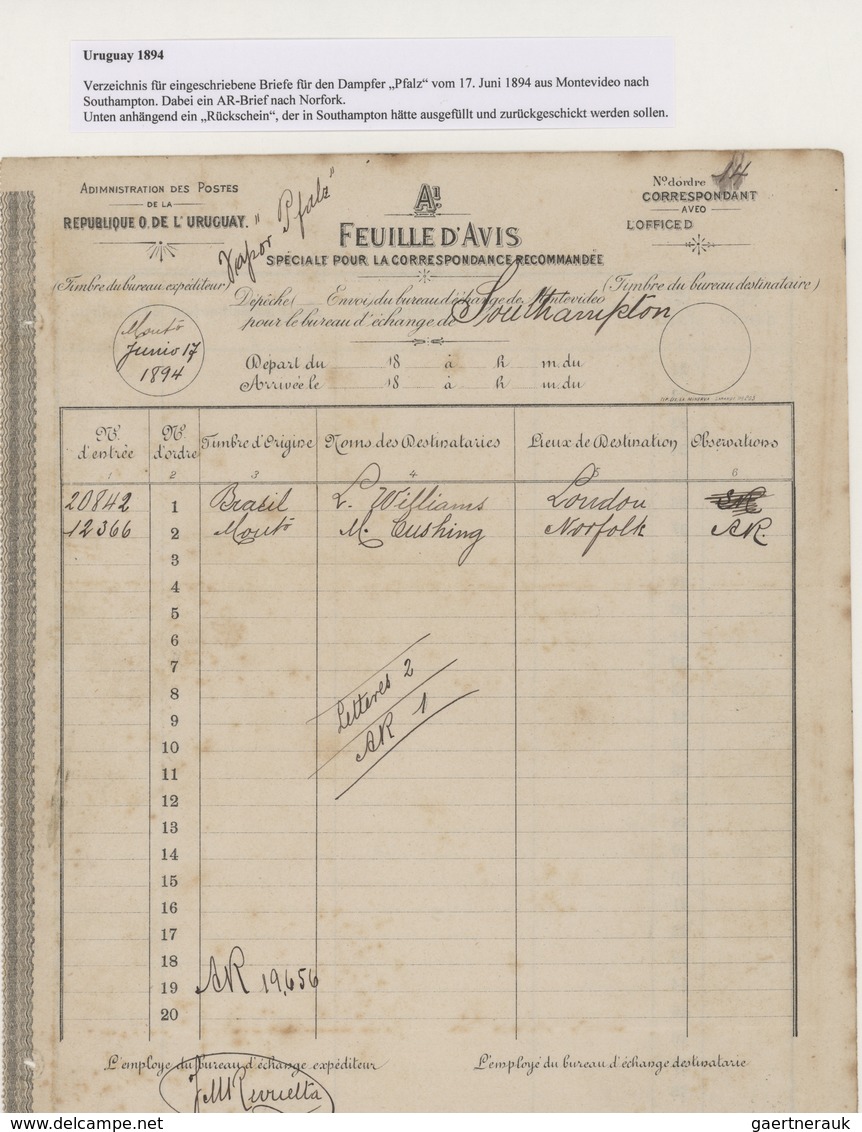 Uruguay 1894
Verzeichnis für eingeschriebene Briefe für den Dampfer „Pfalz“ vom 17. Juni 1894 aus Montevideo nach
Southampton. Dabei ein AR-Brief nach Norfork.
Unten anhängend ein „Rückschein“, der in Southampton hätte ausgefüllt und zurückgeschickt werden sollen.
ADIMNISTRATION DES POSTES
DE LA
REPUBLIQUE O. DE L'URUGUAY.
Vapor "Pfalz"
A1.
FEUILLE D'AVIS
SPÉCIALE POUR LA CORRESPONDANCE RECOMMANDÉE
No d'ordre 14
CORRESPONDANT
AVEO
L'OFFICE D
(Timbre du bureau expéditeur)
Dépêche( Envoi) du bureau d'échange de Montevideo
(Timbre du bureau destinataire)
pour le bureau d'échange de Southampton
Monto
Junio 17
1894
Départ du 18 à h m. du
Arrivée le 18 à h m. du
No. d'entrée No. d'ordre Timbre d'Origine Noms des Destinataries Lieux de Destination Observations
1 2 3 4 5 6
20842 1 Brasil L. Williams London
12366 2 Monto M. Cushing Norfolk AR.
3
4
5
6
7
8
9
10
11
12
13
14
15
16
17
18
19
20
Letteres 2
AR 1
AR 19,656
L'employe du bureau d'échange expéditeur
L'employé du bureau d'échange destinatarie
gaertnerauk